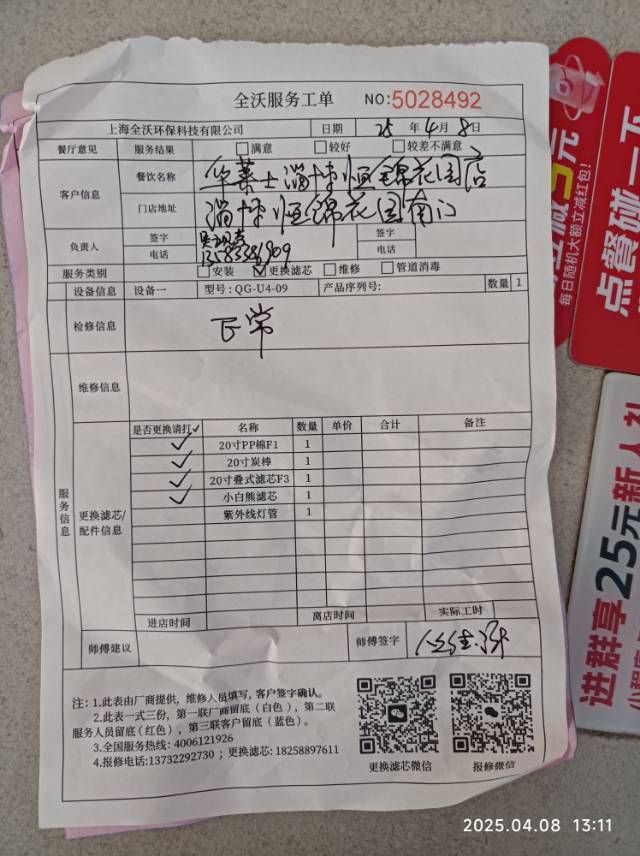 全沃服务工单 NO:5028492
上海全沃环保科技有限公司 日期 25 年 4 月 8 日
餐厅意见 服务结果 满意 较好 较差不满意
客户信息 餐饮名称 华莱士淄博恒锦花园店
门店地址 淄博恒锦花园南门
负责人 签字 签字
电话 电话
服务类别 安装 ✓更换滤芯 维修 管道消毒
设备信息 设备一 型号:QG-U4-09 产品序列号: 数量 1
检修信息 正常
维修信息
服务信息
更换滤芯/配件信息
是否更换请打✓ 名称 数量 单价 合计 备注
✓ 20寸PP棉F1 1
✓ 20寸炭棒 1
✓ 20寸叠式滤芯F3 1
✓ 小白熊滤芯 1
紫外线灯管 1
进店时间 离店时间 实际工时
师傅建议 师傅签字
注:1.此表由厂商提供，维修人员填写，客户签字确认。
2.此表一式三份，第一联厂商留底（白色），第二联
服务人员留底(红色），第三联客户留底（蓝色）。
3.全国服务热线: 4006121926
4.报修电话:13732292730 ; 更换滤芯: 18258897611
更换滤芯微信 报修微信
每日随机大额立减红包!
点餐碰一下
进群享25元新人礼
2025.04.08 13:11